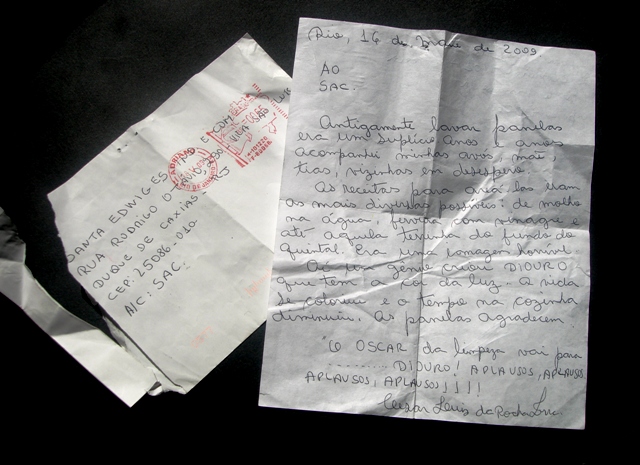 SANTA EDWIGES IND E COM
RUA RODRIGO OTAVIO, VILA SÃO
DUQUE DE CAXIAS - RJ
CEP: 25086-010
A/C: SAC.
Rio, 14 de Maio de 2009
AO
SAC.
Antigamente lavar panelas
era um suplício. Anos e anos
acompanhei minhas avós, mãe,
tias, vizinhas em desespero.
As receitas para areá-las eram
as mais diversas possíveis: de molho
na água, fervura com vinagre e
até aquela terrinha do fundo do
quintal. Era uma lavagem horrível
Aí um gênio criou DIOURO
que tem a cor da luz. A vida
se coloriu e o tempo na cozinha
diminuiu. As panelas agradecem.
"O OSCAR da limpeza vai para
......... DIOURO! APLAUSOS, APLAUSOS,
APLAUSOS, APLAUSOS!!!!
Cesar Luis da Rocha